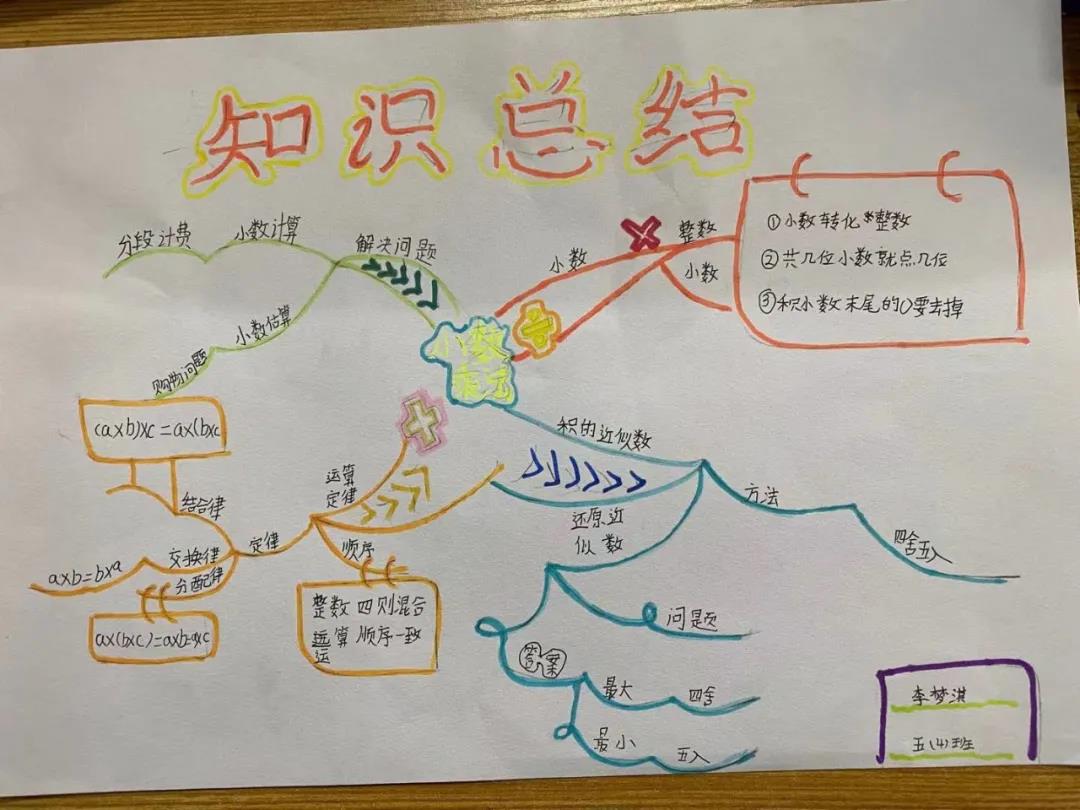 知识总结
分段计费
小数计算
解决问题
小数估算
购物问题
小数
整数
小数
①小数转化整数
②共几位小数就点几位
③积小数末尾的0要去掉
小数
(a×b)×c=a×(b×c
结合律
运算
定律
定律
交换律
a×b=b×a
分配律
a×(b×c)=a×b=a×c
顺序
整数四则混合
运算顺序一致
运
积的近似数
方法
四舍五入
还原近
似数
问题
答案
最大
四舍
最小
五入
李梦淇
五(4)班